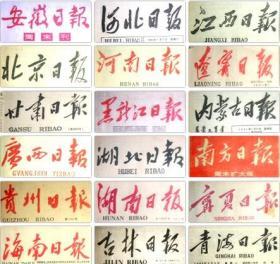 安徽日報
周末刊
河北日报
HEBEI RIBAO
江西日报
JIANGXI RIBAO
北京日报
河南日报
HENAN RIBAO
遼寧日報
LIAONING RIBAO
甘肃日报
GANSU RIBAO
黑龙江日报
内蒙古日报
廣西日報
GVANGJSIH YIZBAO
湖北日報
HUBEI RIBAO
南方日报
周末扩大版
贵州日报
GUIZHOU RIBAO
湖南日报
HUNAN RIBAO
宁夏日报
NINGXIA RIBAO
海南日报
HAINAN RIBAO
吉林日报
JILIN RIBAO
青海日报
QINGHAI RIBAO